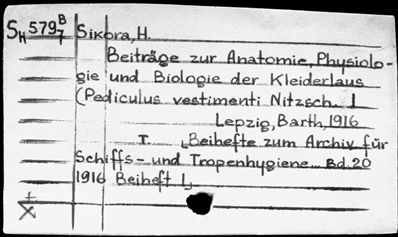 SH 579 B/7 Sikora, H.
Beiträge zur Anatomie, Physiolo-
gie und Biologie der Kleiderlaus
(Pediculus vestimenti Nitzsch. I
Lepzig, Barth, 1916
I „Beihefte zum Archiv für
Schiffs- und Tropenhygiene... Bd. 20
1916 Beiheft I„